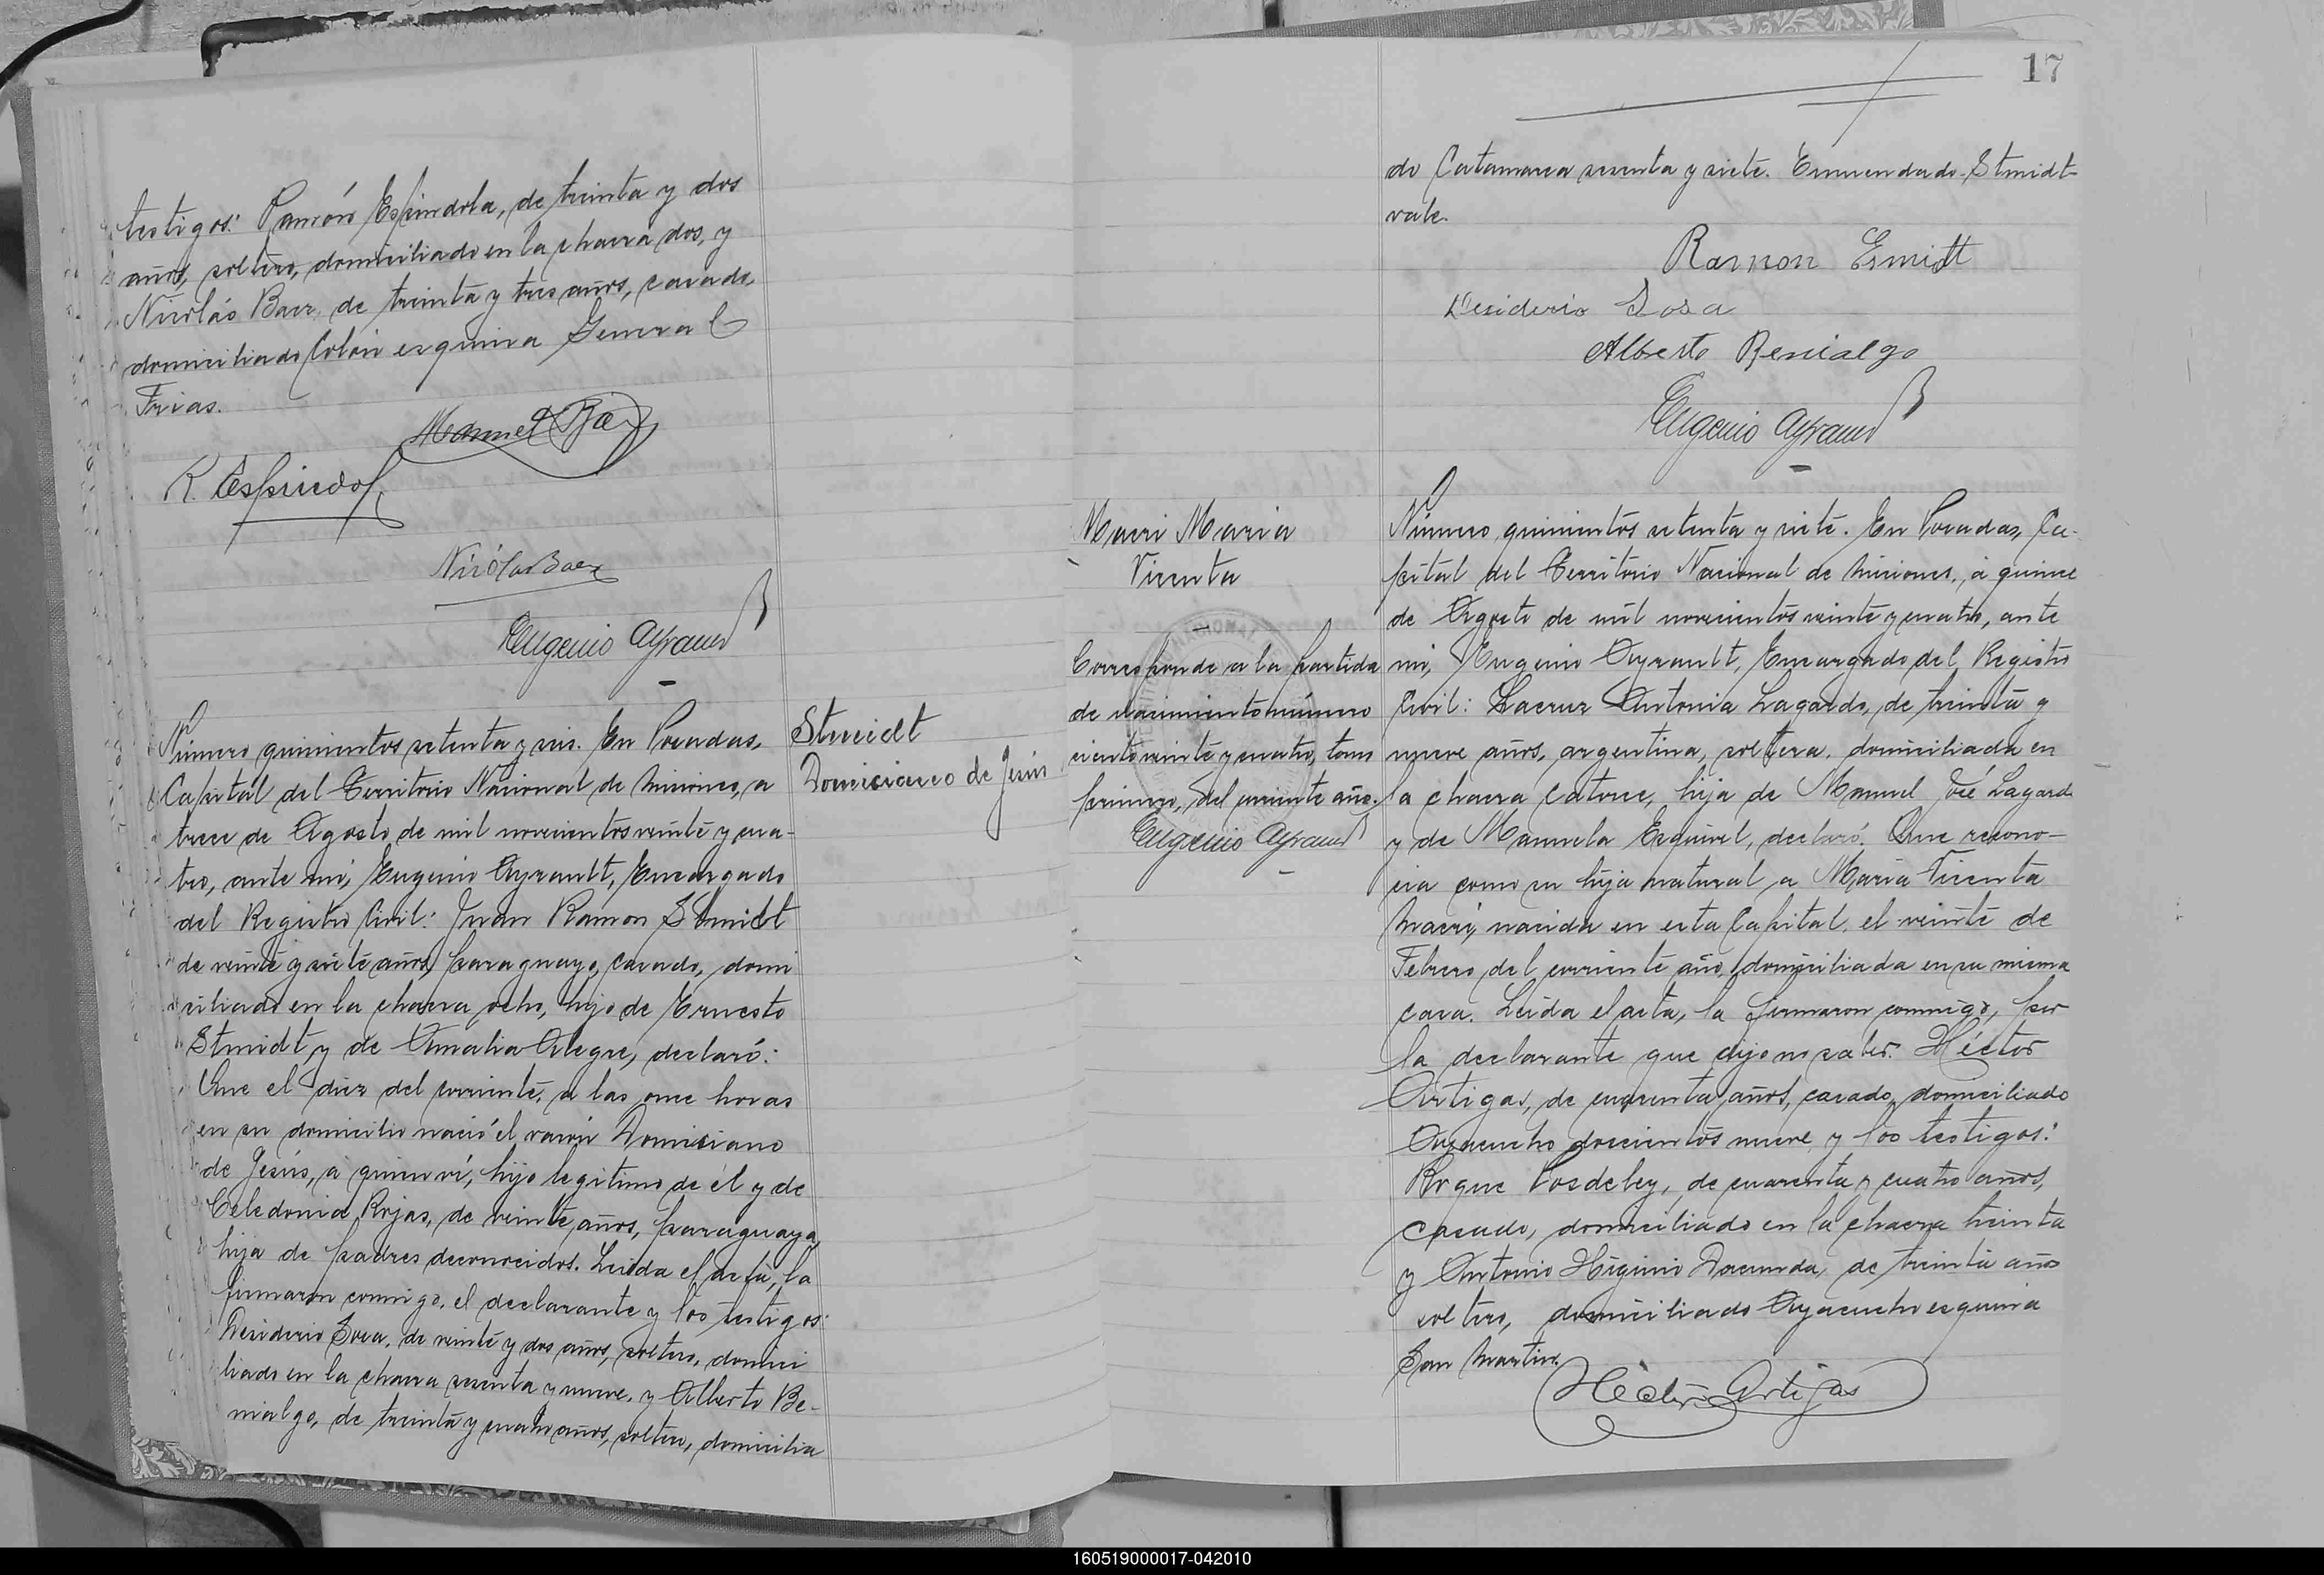 testigos: Ramón Espíndola, de treinta y dos
años, soltero, domiciliado en la chacra dos, y
Nicolás Baez, de treinta y tres años, casado,
domiciliado Colón esquina General
Frias.
Manuel Baez
R. Espindola
Nicolas Baez
Eugenio Ayrault
Número quinientos setenta y seis. En Posadas,
Capital del Territorio Nacional de Misiones, a
trece de Agosto de mil novecientos veinte y cua-
tro, ante mí, Eugenio Ayrault, Encargado
del Registro Civil: Juan Ramon Stmidt
de veinte y siete años, paraguayo, casado, domi
ciliado en la chacra ocho, hijo de Ernesto
Stmidt y de Amalia Alegre, declaró:
Que el diez del corriente, a las once horas
en su domicilio nació el varón Domiciano
de Jesús, a quien ví, hijo legitimo de él y de
Celedonia Rojas, de veinte años, paraguaya,
hija de padres deconocidos. Leida el acta, la
firmaron conmigo, el declarante y los testigos:
Desiderio Sosa, de veinte y dos años, soltero, domici
liado en la chacra sesenta y nueve, y Alberto Be-
nialgo, de treinta y cuatro años, soltero, domicilia
Stmidt
Domiciano de Jesús
17
do Catamarca sesenta y siete. Enmendado-Stmidt-
vale.
Ramon Esmidt
Desiderio Sosa
Alberto Benialgo
Eugenio Ayrault
Macri Maria
Vicenta
Corresponde a la partida
de nacimiento número
ciento veinte y cuatro, tomo
primero, del corriente año.
Eugenio Ayrault
Número quinientos setenta y siete. En Posadas, Ca-
pital del Territorio Nacional de Misiones, á quince
de Agosto de mil novecientos veinte y cuatro, ante
mi, Eugenio Ayrault, Encargado del Registro
Civil: Lacruz Antonia Lagardo, de treinta y
nueve años, argentina, soltera, domiciliada en
la chacra catorce, hija de Manuel José Lagard
y de Manuela Esquivel, declaró: Que recono-
cia como su hija natural a Maria Vicenta
Macri, nacida en esta Capital, el veinte de
Febrero del corriente año, domiciliada en su misma
casa. Leida el acta, la firmaron conmigo, por
la declarante que dijo no saber. Héctor
Artigas, de cuarenta años, casado, domiciliado
Ayacucho doscientos nueve, y los testigos:
Roque Posdeley, de cuarenta y cuatro años,
casado, domiciliado en la chacra treinta
y Antonio Higinio Dacunda, de treinta años
soltero, domiciliado Ayacucho esquina
San Martin.
Héctor Artigas
160519000017-042010